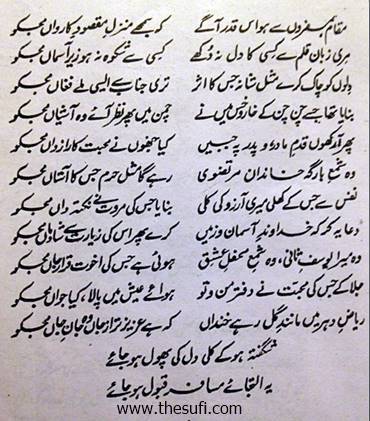 مقام ہمسفروں سے ہو اس قدر آگے کہ سمجھے منزلِ مقصود کارواں مجھکو
مری زبانِ قلم سے کسی کا دل نہ دکھے کسی سے شکوہ نہ ہو زیرِ آسماں مجھکو
دلوں کو چاک کرے مثلِ شانہ جس کا اثر تری جناب سے ایسی ملے فغاں مجھکو
بنایا تھا جسے چن چن کے خار و خس میں نے چمن میں پھر نظر آئے وہ آشیاں مجھکو
پھر آ رکھوں قدمِ مادر و پدر پہ جبیں کیا جنھوں نے محبت کا رازداں مجھکو
وہ شمعِ بارگہِ خاندانِ مرتضوی رہے گا مثلِ حرم جس کا آستاں مجھکو
نفس سے جس کے کھلی میری آرزو کی کلی بنایا جس کی مروت نے نکتہ داں مجھکو
دعا یہ کر کہ خداوندِ آسمان و زمیں کرے پھر اس کی زیارت سے شادماں مجھکو
وہ میرا یوسفِ ثانی، وہ شمعِ محفلِ عشق ہوئی ہے جس کی اخوت قرارِ جاں مجھکو
جلا کے جس کی محبت نے دفترِ من و تو ہوائے عیش میں پالا، کیا جواں مجھکو
ریاضِ دہر میں مانندِ گل رہے خنداں کہ ہے عزیز تر از جاں وہ جانِ جاں مجھکو
شگفتہ ہو کے کلی دل کی پھول ہو جائے
یہ التجائے مسافر قبول ہو جائے
www.thesufi.com